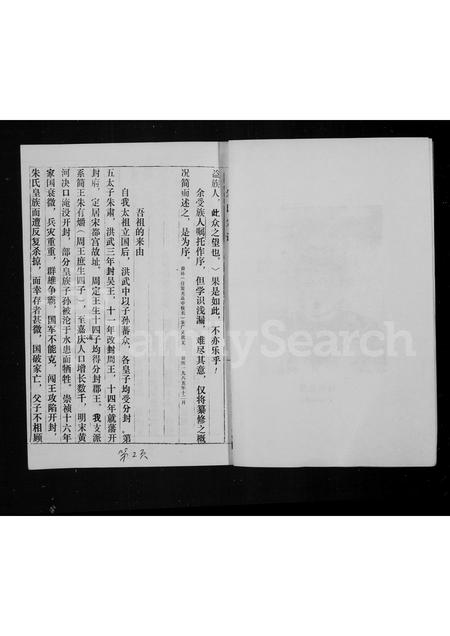 益族人，此众之望也。）果是如此，不亦乐乎！
余受族人嘱托作序，但学识浅漏，难尽其意，仅将纂修之概
况简而述之，是为序。
吾祖的来由
自我太祖立国后，洪武中以子孙蕃众，各皇子均受分封。第
五太子朱肃，洪武三年封吴王，十一年改封周王，十四年就藩开
封府，定居宋都宫故址，周定王生十四子均得分封郡王。我支派
系简王朱有爝（周王庶生四子），至嘉庆人口增长数千，明末黄
河决口淹没开封，部分皇族子孙被沦于水患而牺牲。崇祯十六年
家国衰微，兵灾重重，群雄争霸，国军不能克，闯王攻陷开封，
朱氏皇族而遭反复杀掠，而幸存者甚微，国破家亡，父子不相顾
第2页
FamilySearch